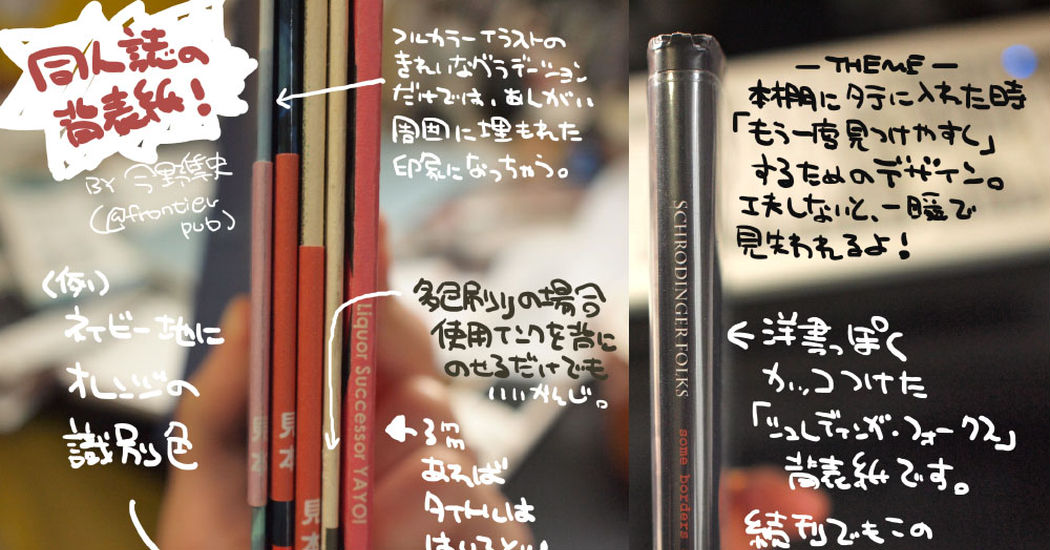 同人誌の
背表紙！
BY 今野隼史
(@frontier
pub)
フルカラーイラストの
きれいなグラデーション
だけでは、あんがい
周囲に埋もれた
印象になっちゃう。
(例)
ネイビー地に
オレンジの
識別色
多色刷りの場合
使用インクを背に
のせるだけでも
いいかんじ。
3mm
あれば
タイトルは
はいるとい
見本
見本
見本
Liquor Successor YAYOI
SCHRODINGER FOLKS
some borders
— THEME —
本棚にタテに入れた時
「もう一度見つけやすく」
するためのデザイン。
工夫しないと、一瞬で
見失われるよ！
←洋書っぽく
カッコつけた
「シュレディンガ・フォークス」
背表紙です。
続刊でもこの